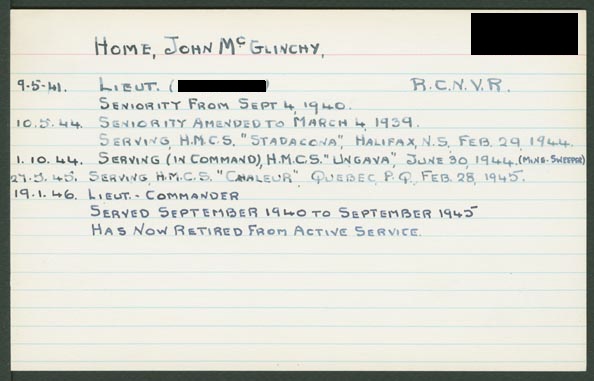 HOME, JOHN McGLINCHY,
9.5.41. LIEUT. ( ) R.C.N.V.R.
SENIORITY FROM SEPT 4, 1940.
10.5.44. SENIORITY AMENDED TO MARCH 4, 1939.
SERVING, H.M.C.S. "STADACONA", HALIFAX, N.S, FEB. 29, 1944.
1.10.44. SERVING (IN COMMAND), H.M.C.S. "UNGAVA", JUNE 30, 1944. (MINE-SWEEPER)
SERVING, H.M.C.S. "CHALEUR", QUEBEC, P.Q, FEB. 28, 1945.
19.1.46. LIEUT.-COMMANDER
SERVED SEPTEMBER 1940 TO SEPTEMBER 1945
HAS NOW RETIRED FROM ACTIVE SERVICE.